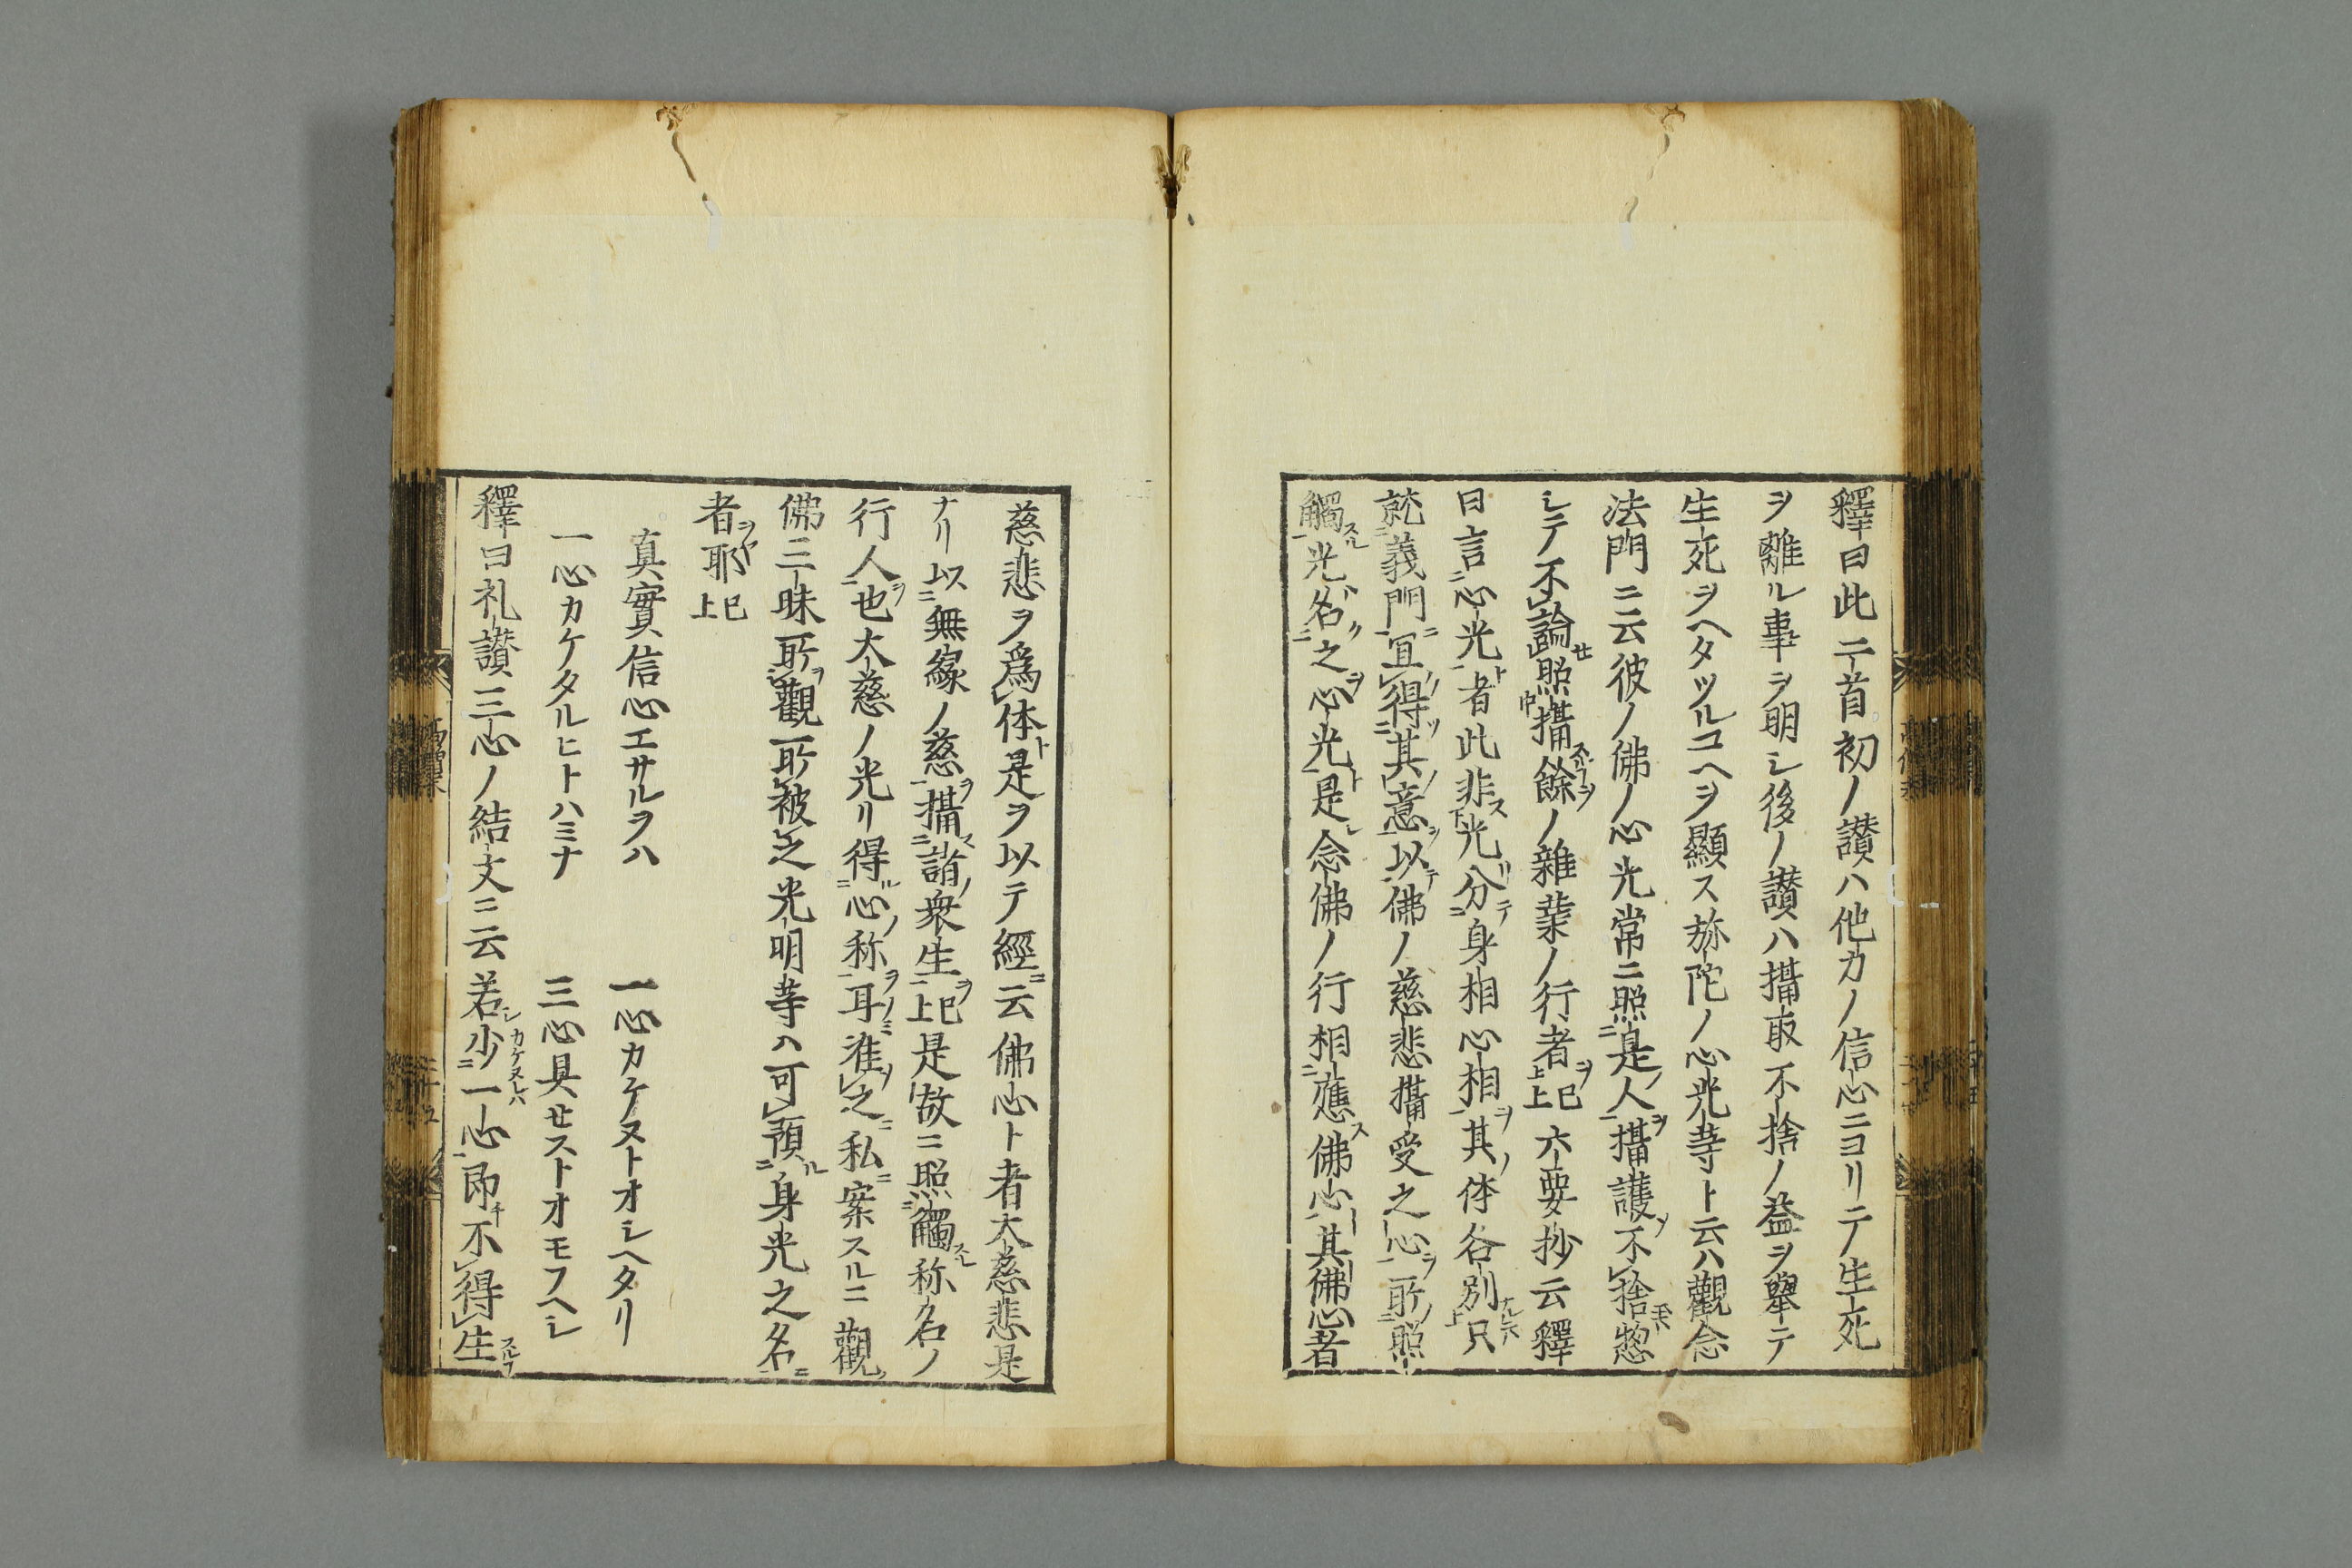 釋曰此二首初ノ讃ハ他力ノ信心ニヨリテ生死
ヲ離ル事ヲ明シ後ノ讃ハ攝取不捨ノ益ヲ擧テ
生死ヲヘタツルコヘヲ顯ス弥陀ノ心光等ト云ハ觀念
法門ニ云彼ノ佛ノ心光常ニ照是人攝護不捨惣
シテ不論照攝餘ノ雜業ノ行者已上六要抄云釋
曰言心光者此非光分身相心相其体各別只
就義門宜得其意以佛ノ慈悲攝受之心所照
觸光名之心光是念佛ノ行相應佛心其佛心者
慈悲ヲ爲体是ヲ以テ經云佛心ト者大慈悲是
ナリ以無緣ノ慈攝諸衆生已上是故ニ照觸称名ノ
行人也大慈ノ光リ得心称耳准之私案スルニ觀
佛三昧所觀所被之光明等ハ可預身光之名
者耶已上
真實信心エサルヲハ 一心カケヌトオシヘタリ
一心カケタルヒトハミナ 三心具セストオモフヘシ
釋曰礼讃三心ノ結文ニ云若少一心即不得生